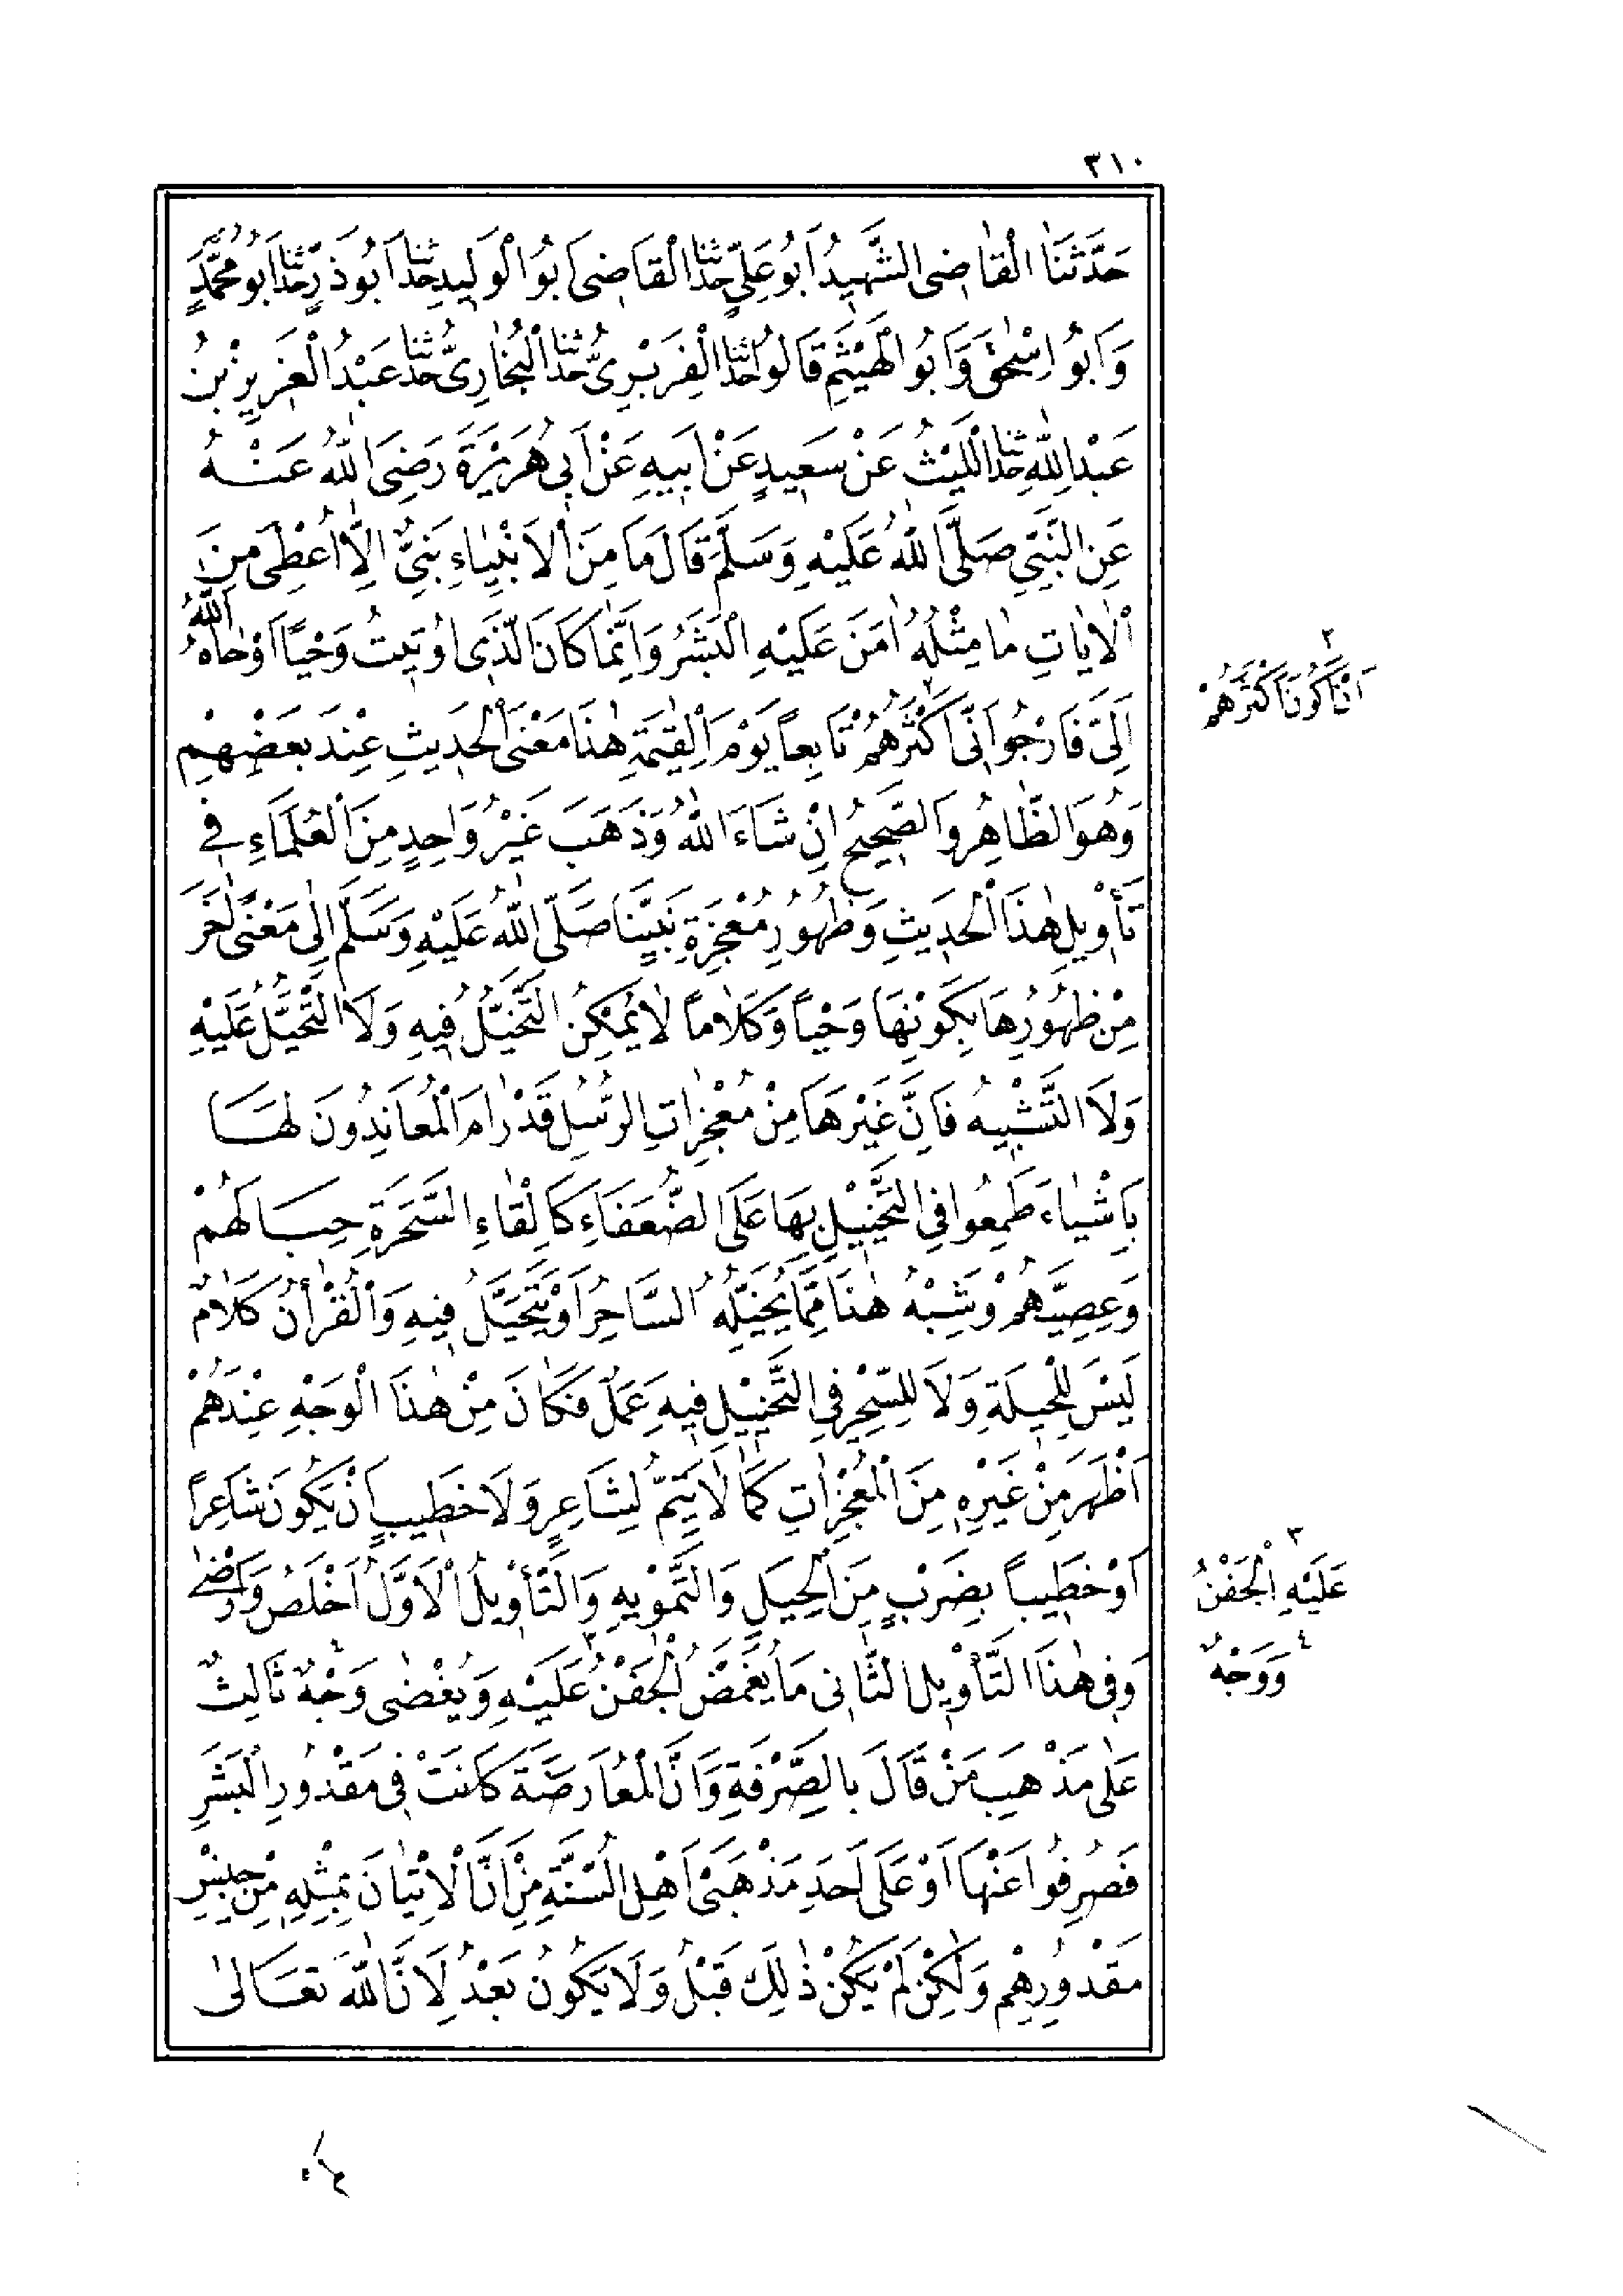 ٣١٠
حَدَّثَنَا الْقَاضِى الشَّهِيدُ اَبُو عَلِيٍّ حَدَّثَنَا الْقَاضِى اَبُو الْوَلِيدِ حَدَّثَنَا اَبُو ذَرٍّ حَدَّثَنَا اَبُو مُحَمَّدٍ
وَاَبُو اِسْحٰقَ وَاَبُو الْهَيْثَمِ قَالُوا حَدَّثَنَا الْفِرَبْرِىُّ حَدَّثَنَا الْبُخَارِىُّ حَدَّثَنَا عَبْدُ الْعَزِيزِ بْنُ
عَبْدِ اللّٰهِ حَدَّثَنَا اللَّيْثُ عَنْ سَعِيدٍ عَنْ اَبِيهِ عَنْ اَبِى هُرَيْرَةَ رَضِىَ اللّٰهُ عَنْهُ
عَنِ النَّبِىِّ صَلَّى اللّٰهُ عَلَيْهِ وَسَلَّمَ قَالَ مَا مِنَ الْاَنْبِيَاءِ نَبِىٌّ اِلَّا اُعْطِىَ مِنَ
الْاٰيَاتِ مَا مِثْلُهُ اٰمَنَ عَلَيْهِ الْبَشَرُ وَاِنَّمَا كَانَ الَّذِى اُوتِيتُ وَحْيًا اَوْحَاهُ اللّٰهُ
اِلَىَّ فَاَرْجُو اَنِّى اَكْثَرُهُمْ تَابِعاً يَوْمَ الْقِيٰمَةِ هٰذَا مَعْنَى الْحَدِيثِ عِنْدَ بَعْضِهِمْ
وَهُوَ الظَّاهِرُ وَالصَّحِيحُ اِنْ شَاءَ اللّٰهُ وَذَهَبَ غَيْرُ وَاحِدٍ مِنَ الْعُلَمَاءِ فِى
تَأْوِيلِ هٰذَا الْحَدِيثِ وَظُهُورِ مُعْجِزَةِ نَبِيِّنَا صَلَّى اللّٰهُ عَلَيْهِ وَسَلَّمَ اِلٰى مَعْنًى اٰخَرَ
مِنْ ظُهُورِهَا بِكَوْنِهَا وَحْياً وَكَلَاماً لَا يُمْكِنُ التَّخَيُّلُ فِيهِ وَلَا التَّحَيُّلُ عَلَيْهِ
وَلَا التَّشْبِيهُ فَاِنَّ غَيْرَهَا مِنْ مُعْجِزَاتِ الرُّسُلِ قَدْ رَامَ الْمُعَانِدُونَ لَهَا
بِاَشْيَاءَ طَمِعُوا فِى التَّخْيِيلِ بِهَا عَلَى الضُّعَفَاءِ كَاِلْقَاءِ السَّحَرَةِ حِبَالَهُمْ
وَعِصِيَّهُمْ وَشِبْهُ هٰذَا مِمَّا يُخَيِّلُهُ السَّاحِرُ اَوْ يَتَحَيَّلُ فِيهِ وَالْقُرْاٰنُ كَلَامٌ
لَيْسَ لِلْحِيلَةِ وَلَا لِلسِّحْرِ فِى التَّخْيِيلِ فِيهِ عَمَلٌ فَكَانَ مِنْ هٰذَا الْوَجْهِ عِنْدَهُمْ
اَظْهَرَ مِنْ غَيْرِهِ مِنَ الْمُعْجِزَاتِ كَمَا لَا يَتِمُّ لِشَاعِرٍ وَلَا خَطِيبٍ اَنْ يَكُونَ شَاعِراً
اَوْ خَطِيباً بِضَرْبٍ مِنَ الْحِيَلِ وَالتَّمْوِيهِ وَالتَّأْوِيلُ الْاَوَّلُ اَخْلَصُ وَاَرْضٰى
وَفِى هٰذَا التَّأْوِيلِ الثَّانِى مَا يُغَمَّضُ الْجَفْنُ عَلَيْهِ وَيُغْضٰى وَجْهٌ ثَالِثٌ
عَلٰى مَذْهَبِ مَنْ قَالَ بِالصَّرْفَةِ وَاَنَّ الْمُعَارَضَةَ كَانَتْ فِى مَقْدُورِ الْبَشَرِ
فَصُرِفُوا عَنْهَا اَوْ عَلٰى اَحَدِ مَذْهَبَىْ اَهْلِ السُّنَّةِ مِنْ اَنَّ الْاِتْيَانَ بِمِثْلِهِ مِنْ جِنْسِ
مَقْدُورِهِمْ وَلٰكِنْ لَمْ يَكُنْ ذٰلِكَ قَبْلُ وَلَا يَكُونُ بَعْدُ لِاَنَّ اللّٰهَ تَعَالٰى
٢
اَنْ اَكُونَ اَكْثَرَهُمْ
٣
عَلَيْهِ الْجَفْنُ
٤
وَوَجْهٌ